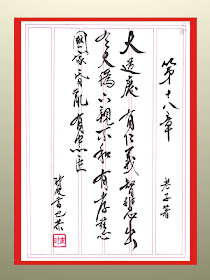 第十八章 老子著
大道廢 有仁義 智慧出
有大偽 六親不和 有孝慈
國家昏亂 有忠臣